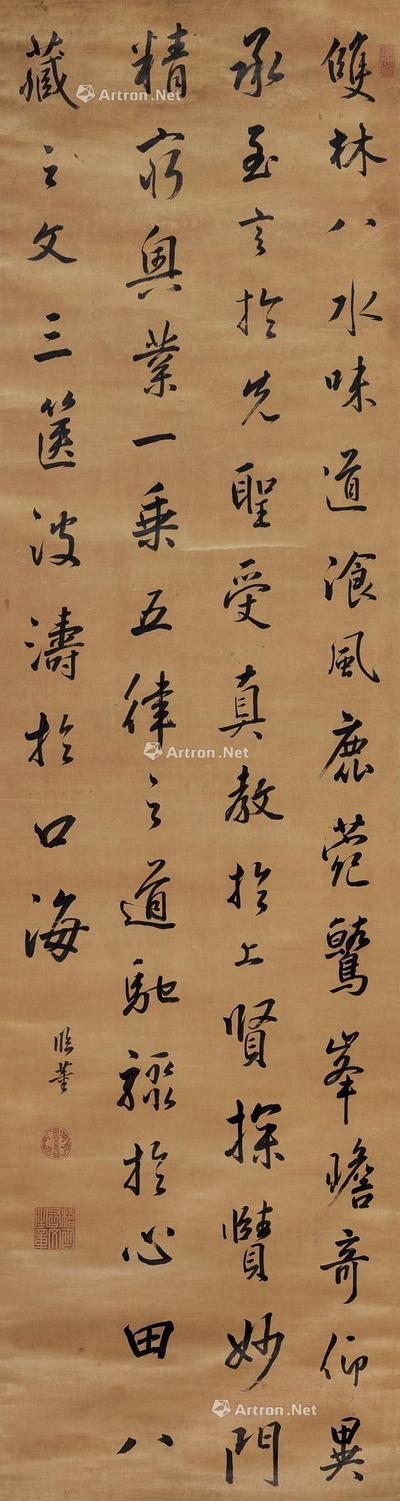 雙林八水味道湌風鹿菀鷲峯瞻奇仰異
承至言於先聖受真教於上賢探賾妙門
精窮奧業一乘五律之道馳驟於心田八
藏之文三篋波濤於口海
臨董
Artron.Net
Artron.Net
Artron.Net